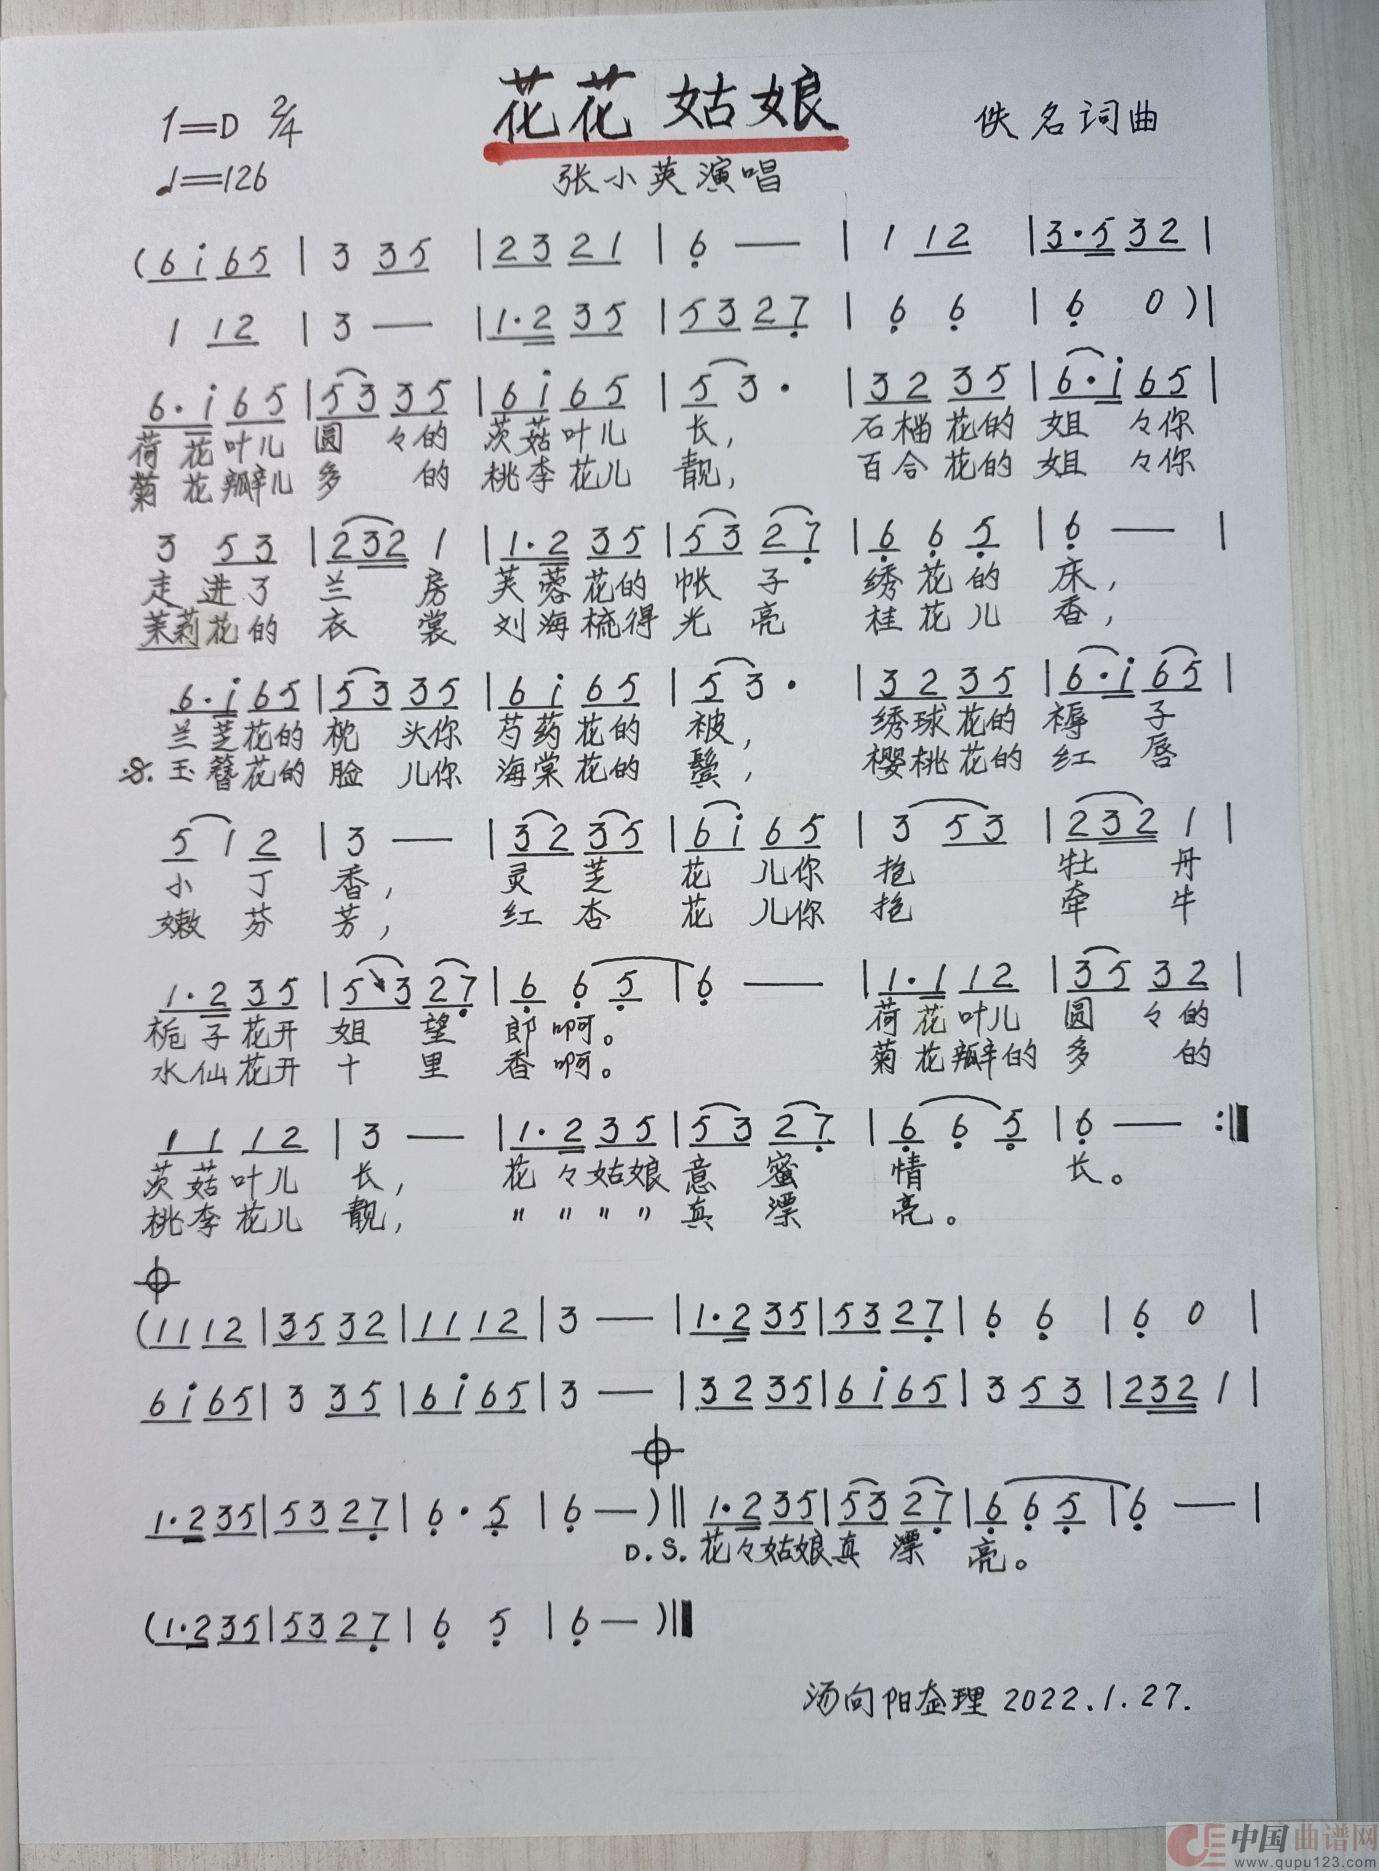 花花姑娘
1=D 2/4
佚名词曲
♩=126
张小英演唱
(6i 65 | 3 35 | 23 21 | 6 — | 1 12 | 3·5 32 |
1 12 | 3 — | 1·2 35 | 53 27 | 6 6 | 6 0 )|
6·i 65 | 53 35 | 6i 65 | 5 3· | 32 35 | 6·i 65 |
荷花叶儿 圆々的 茨菇叶儿 长, 石榴花的 姐々你
菊花瓣儿 多的 桃李花儿 靓, 百合花的 姐々你
3 53 | 232 1 | 1·2 35 | 53 27 | 6 6 5 | 6 — |
走进了 兰房 芙蓉花的 帐子 绣花的 床,
茉莉花的 衣裳 刘海梳得 光亮 桂花儿 香,
6·i 65 | 53 35 | 6i 65 | 5 3· | 32 35 | 6·i 65 |
兰芝花的 枕头你 芍药花的 被, 绣球花的 褥子
𝄋 玉簪花的 脸儿你 海棠花的 鬓, 樱桃花的 红唇
5 1 2 | 3 — | 32 35 | 6i 65 | 3 53 | 232 1 |
小丁 香, 灵芝 花儿你 抱 牡丹
嫩芬 芳, 红杏 花儿你 抱 牵牛
1·2 35 | 53 27 | 6 6 5 | 6 — | 1·1 12 | 35 32 |
栀子花开 姐望 郎啊。 荷花叶儿 圆々的
水仙花开 十里 香啊。 菊花瓣的 多的
11 12 | 3 — | 1·2 35 | 53 27 | 6 6 5 | 6 — :‖
茨菇叶儿 长, 花々姑娘 意蜜 情 长。
桃李花儿 靓, 〃〃〃〃 真漂 亮。
(11 12 | 35 32 | 11 12 | 3 — | 1·2 35 | 53 27 | 6 6 | 6 0 |
6i 65 | 3 35 | 6i 65 | 3 — | 32 35 | 6i 65 | 3 53 | 232 1 |
1·2 35 | 53 27 | 6·5 | 6 — )‖ 1·2 35 | 53 27 | 6 6 5 | 6 — |
D.S. 花々姑娘 真漂 亮。
(1·2 35 | 53 27 | 6 5 | 6 — )‖
汤向阳整理 2022.1.27.
中国曲谱网
www.qupu123.com